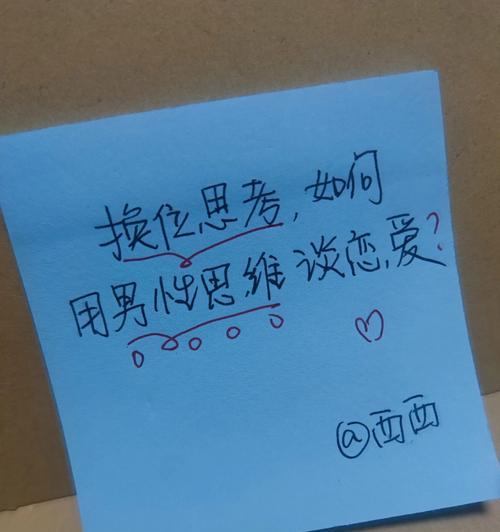 换位思考,如何
用男性思维谈恋爱?
@西西